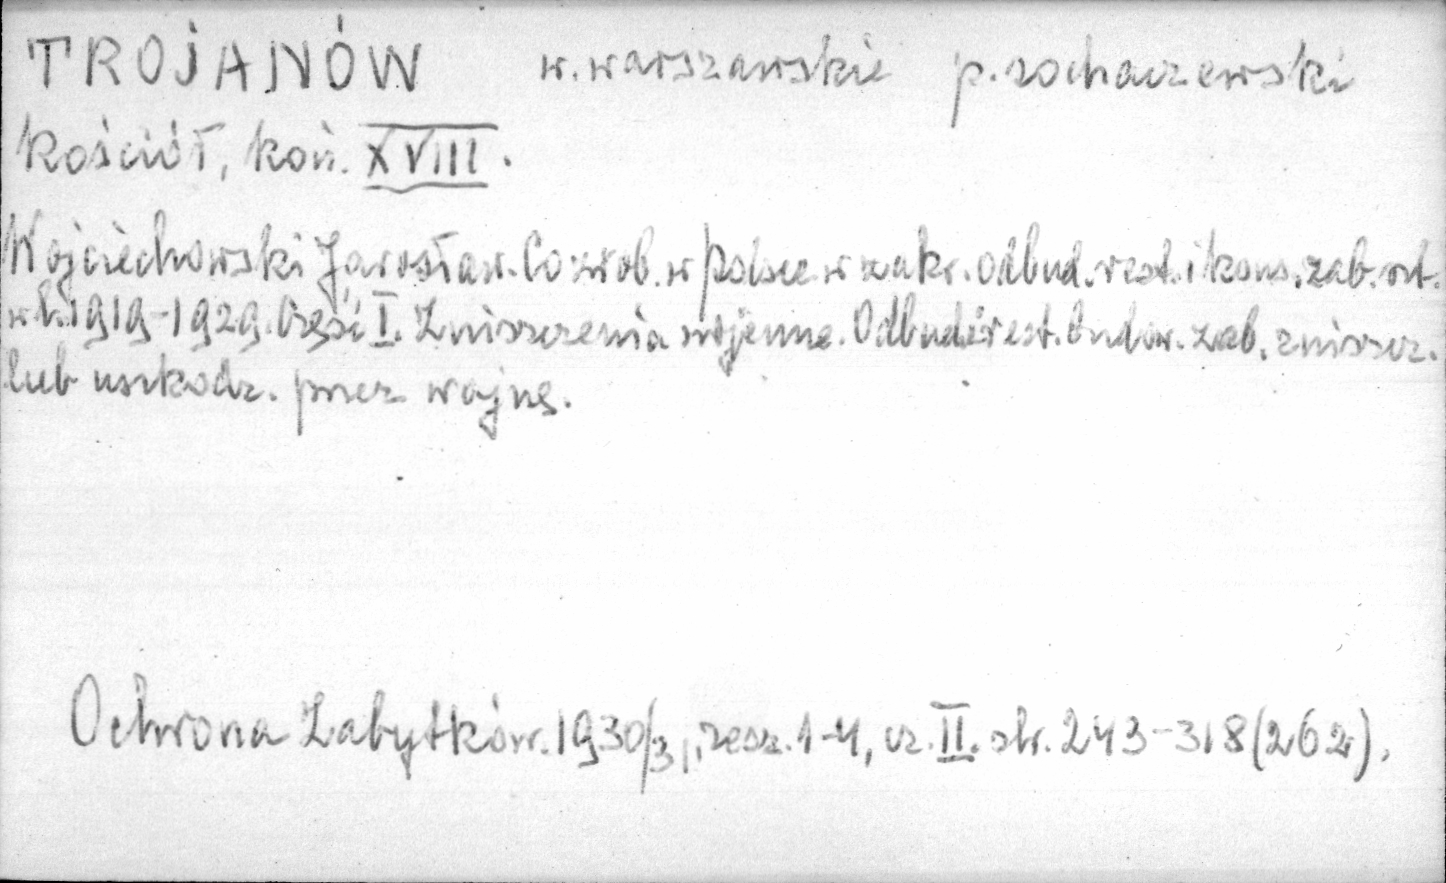 TROJANÓW w. warszawskie p. sochaczewski
kościół, koń. XVIII.
Wojciechowski Jarosław. Co zrob. w Polsce w zakr. odbud. rest. i kons. zab. szt.
w l. 1919-1929. Część I. Zniszczenia wojenne. Odbud. i rest. budow. zab. zniszcz.
lub uszkodz. przez wojnę.
Ochrona Zabytków. 1930/31, zesz. 1-4, cz. II. str. 243-318 (262).